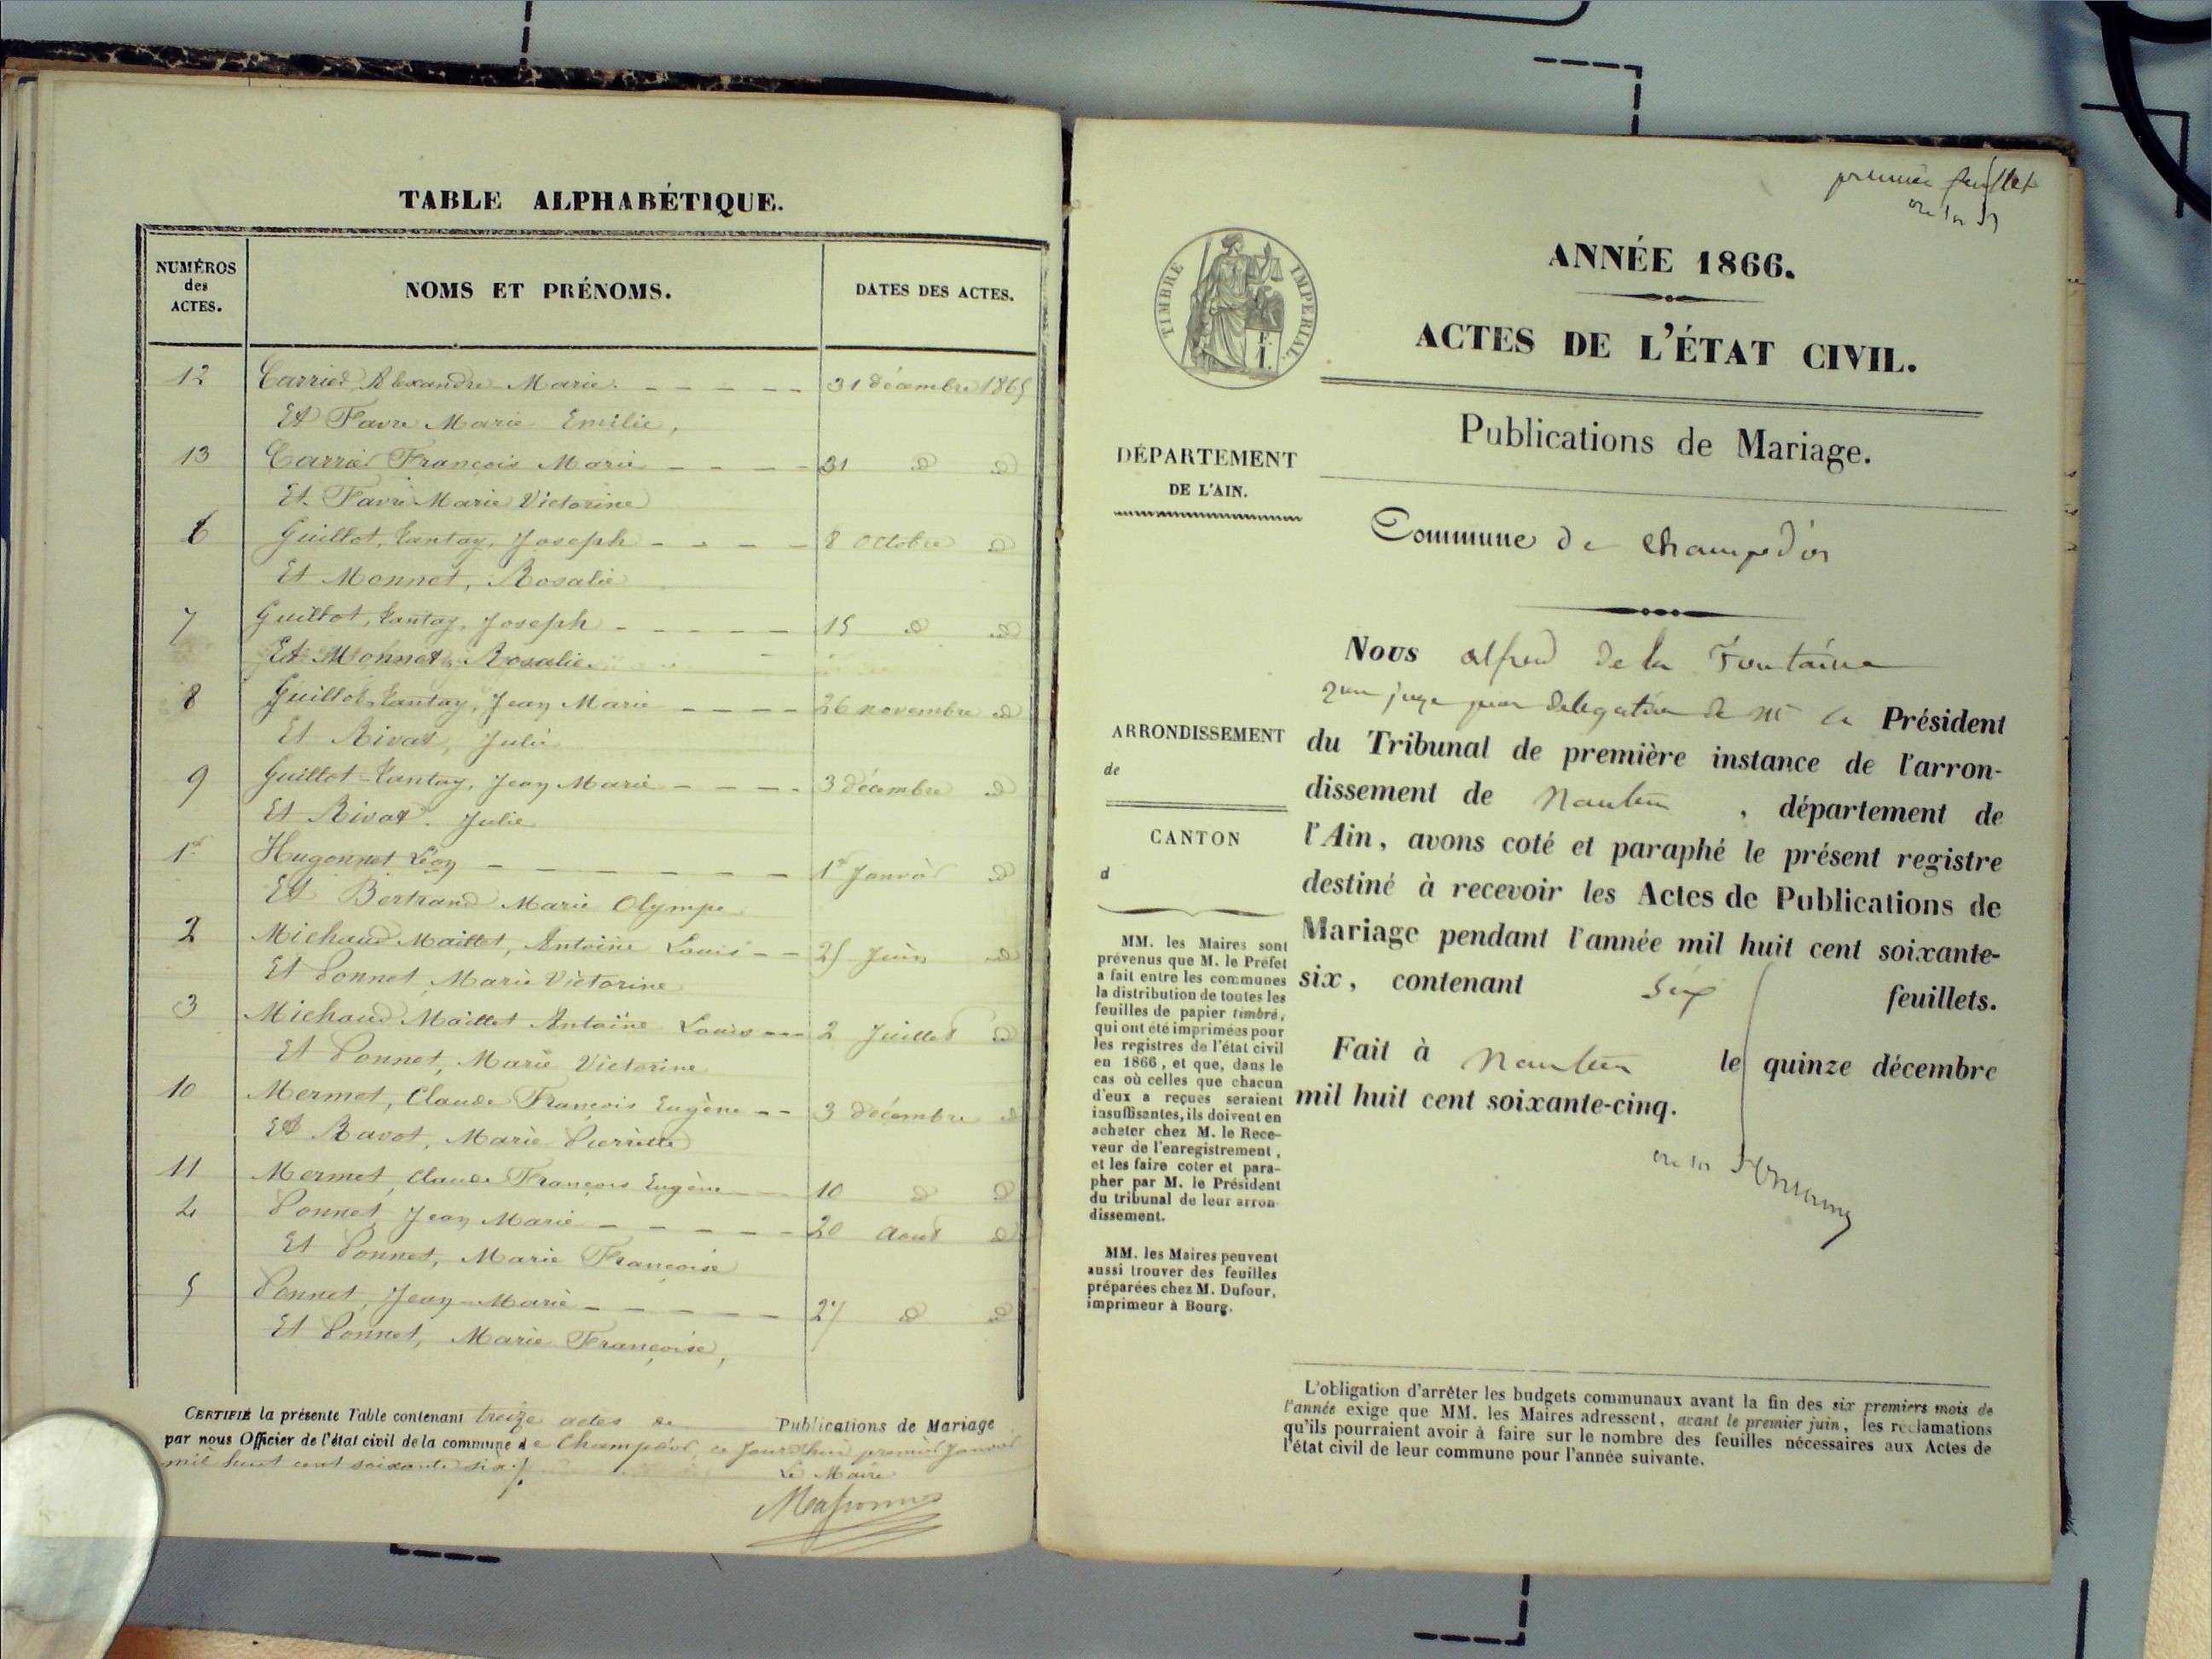 TABLE ALPHABÉTIQUE.
NUMÉROS
des
ACTES.
NOMS ET PRÉNOMS.
DATES DES ACTES.
12 Carrier Alexandre Marie 31 décembre 1865
Et Favre Marie Emilie,
13 Carrier François Marie 31 d d
Et Favre Marie Victorine
6 Guillot, Joseph 8 Octobre d
Et Monnet, Rosalie
7 Guillot, Joseph 15 d d
Et Monnet, Rosalie
8 Guillot, Jean Marie 26 novembre d
Et Rivat, Julie
9 Guillot, Jean Marie 3 décembre d
Et Rivat. Julie
1er Hugonnet Léon 1er Janvier d
Et Bertrand Marie Olympe
2 Michaud Maillet, Antoine Louis 25 Juin d
Et Ponnet, Marie Victorine
3 Michaud Maillet Antoine Louis 2 Juillet d
Et Ponnet, Marie Victorine
10 Mermet, Claude François Eugène 3 décembre d
Et Ravot, Marie Pierrette
11 Mermet, Claude François Eugène 10 d d
4 Ponnet Jean Marie 20 Aout d
Et Ponnet, Marie Françoise
5 Ponnet, Jean Marie 27 d d
Et Ponnet, Marie Françoise,
CERTIFIÉ la présente Table contenant treize actes de Publications de Mariage
par nous Officier de l'état civil de la commune de Champdor, ce Jourdhui premier Janvier
mil huit cent soixante six
Le Maire
première feuillet
ANNÉE 1866.
TIMBRE IMPÉRIAL.
ACTES DE L'ÉTAT CIVIL.
Publications de Mariage.
DÉPARTEMENT
DE L'AIN.
Commune de champdor
Nous alfred de la Fontaine
juge par délégation de Mr le Président
du Tribunal de première instance de l'arron-
dissement de Nantua, département de
l'Ain, avons coté et paraphé le présent registre
destiné à recevoir les Actes de Publications de
Mariage pendant l'année mil huit cent soixante-
six, contenant six feuillets.
Fait à Nantua le quinze décembre
mil huit cent soixante-cinq.
ARRONDISSEMENT
de
CANTON
d
MM. les Maires sont
prévenus que M. le Préfet
a fait entre les communes
la distribution de toutes les
feuilles de papier timbré,
qui ont été imprimées pour
les registres de l'état civil
en 1866, et que, dans le
cas où celles que chacun
d'eux a reçues seraient
insuffisantes, ils doivent en
acheter chez M. le Rece-
veur de l'enregistrement,
et les faire coter et para-
pher par M. le Président
du tribunal de leur arron-
dissement.
MM. les Maires peuvent
aussi trouver des feuilles
préparées chez M. Dufour,
imprimeur à Bourg.
L'obligation d'arrêter les budgets communaux avant la fin des six premiers mois de
l'année exige que MM. les Maires adressent, avant le premier juin, les réclamations
qu'ils pourraient avoir à faire sur le nombre des feuilles nécessaires aux Actes de
l'état civil de leur commune pour l'année suivante.